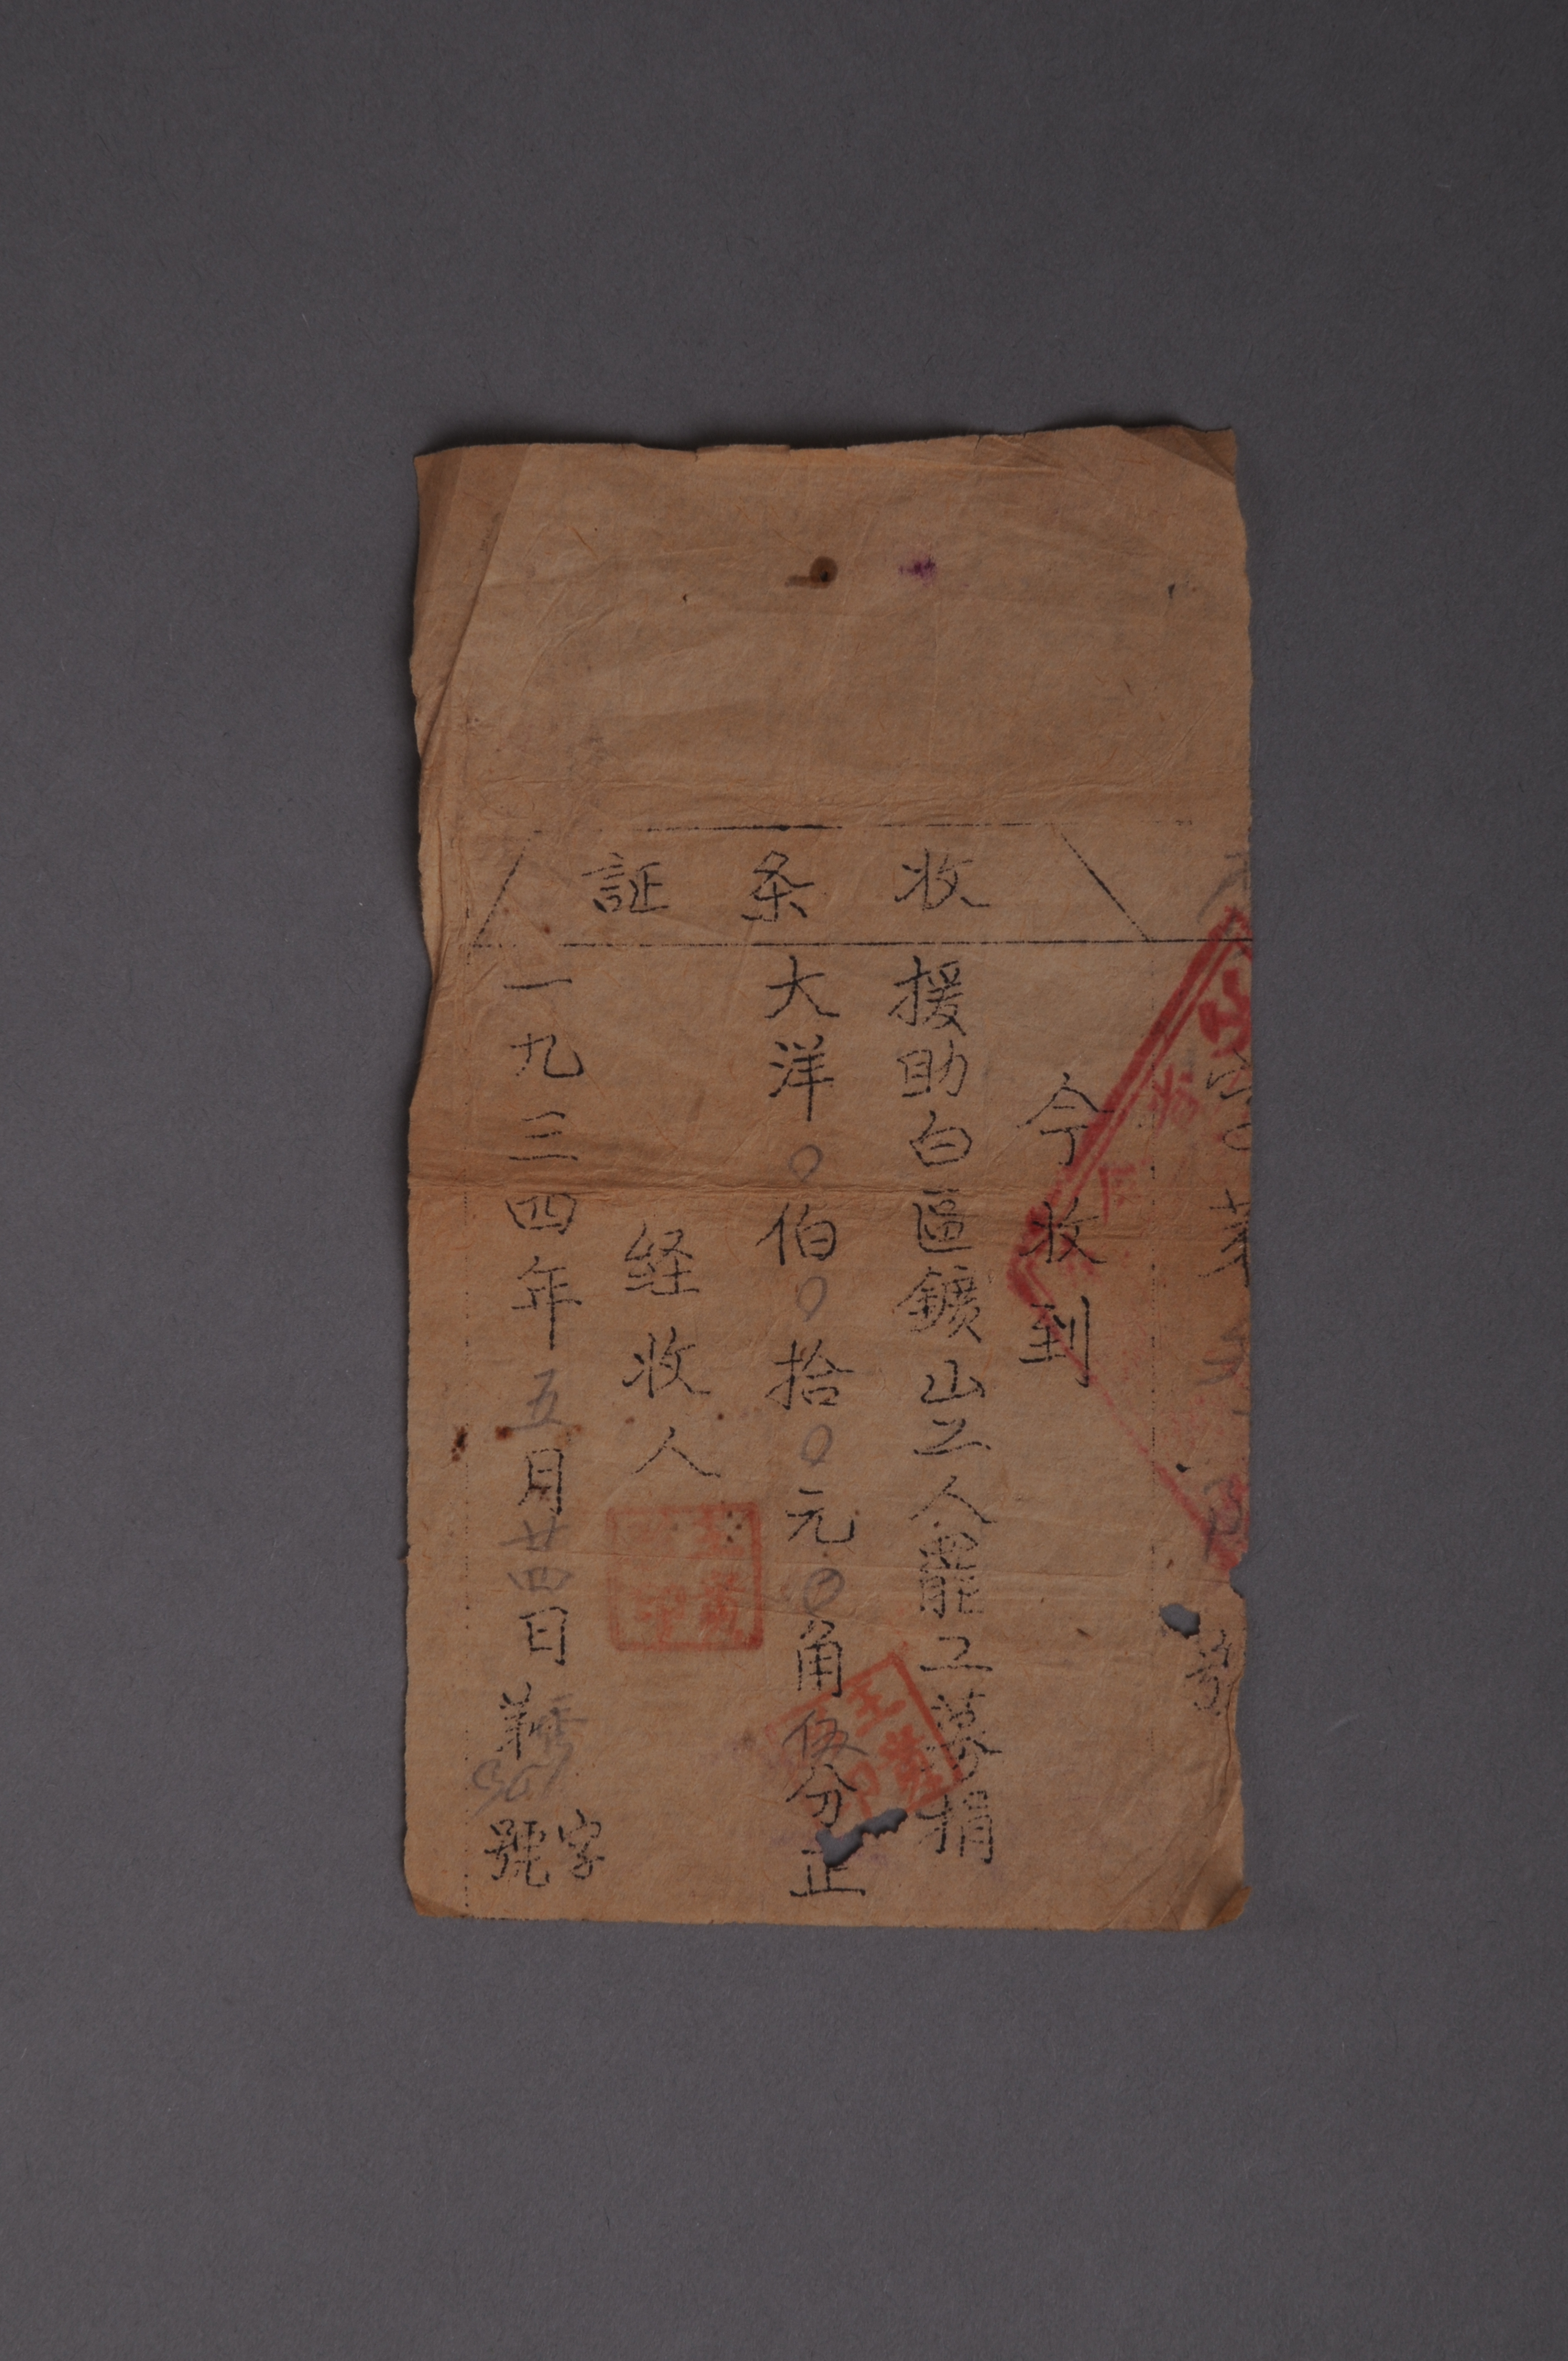 收条証
今收到
援助白區鑛山工人罷工募捐
大洋〇伯〇拾〇元〇角伍分正
経收人
一九三四年五月廿四日
字
號